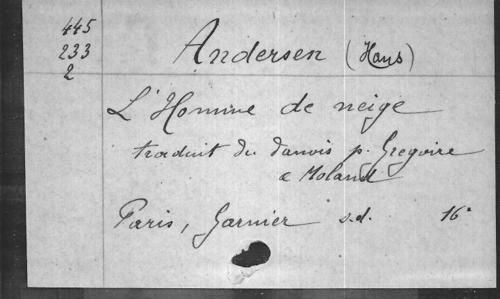 445
233
2
Andersen (Hans)
L'Homme de neige
traduit du danois p. Gregoire
& Moland
Paris, Garnier s.d. 16°